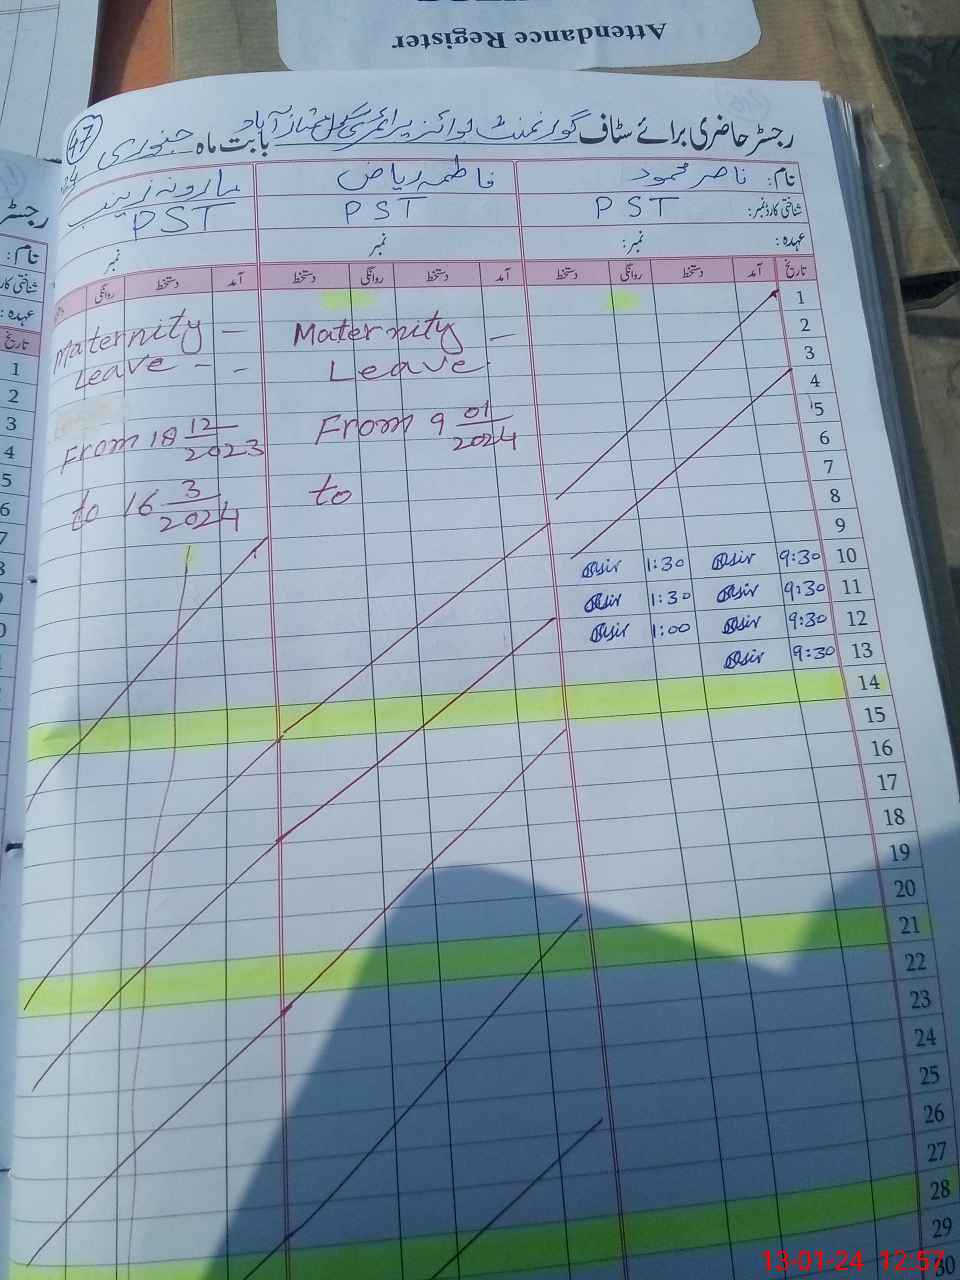 Attendance Register
رجسٹر حاضری برائے سٹاف گورنمنٹ بوائز پرائمری سکول ممتاز آباد بابت ماہ جنوری
47
نام: ناصر محمود
فاطمہ ریاض
شناختی کارڈ نمبر: PST
PST
PST
عہدہ: نمبر:
نمبر
نمبر
تاریخ آمد دستخط روانگی دستخط آمد دستخط روانگی دستخط آمد دستخط روانگی
1
2
3
4
5
6
7
8
9
10 9:30 1:30
11 9:30 1:30
12 9:30 1:00
13 9:30
14
15
16
17
18
19
20
21
22
23
24
25
26
27
28
29
30
Maternity
Leave
From 9 01/2024
to
Maternity
Leave
From 18 12/2023
to 16 3/2024
رجسٹر
نام:
شناختی کار
عہدہ:
تاریخ
1
2
3
4
5
6
13-01-24 12:57